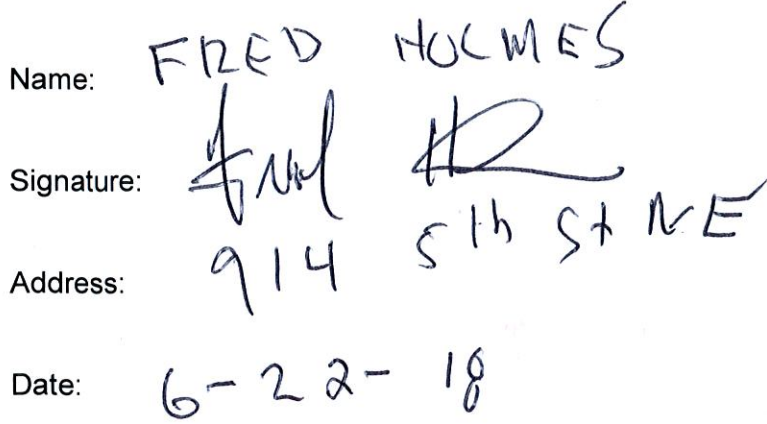 Name: FRED HOLMES
Signature: Fred H
Address: 914 5th St NE
Date: 6-22-18